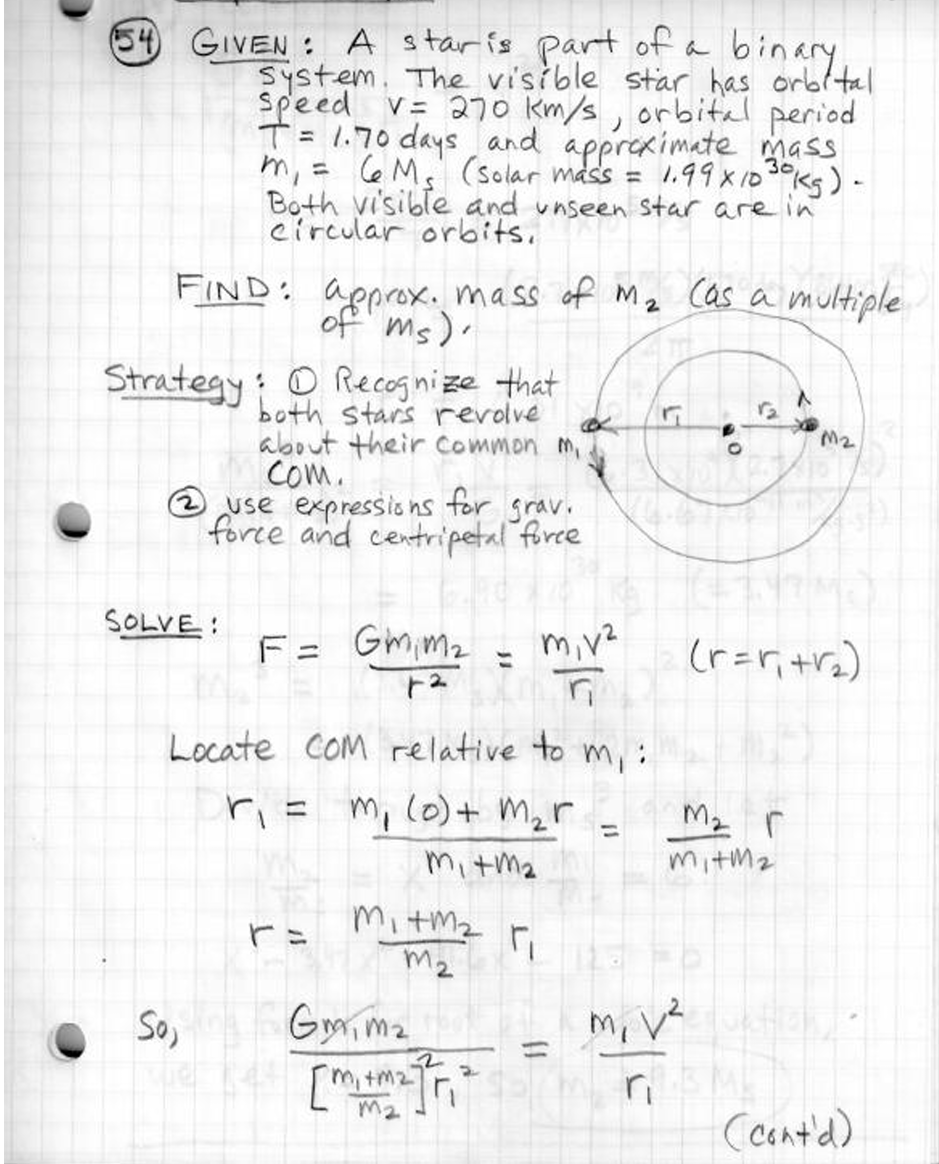 54 GIVEN : A star is part of a binary
system. The visible star has orbital
speed v = 270 km/s, orbital period
T = 1.70 days and approximate mass
m₁ = 6 Mₛ (solar mass = 1.99 x 10³⁰ kg).
Both visible and unseen star are in
circular orbits.
FIND: approx. mass of m₂ (as a multiple
of mₛ).
Strategy: ① Recognize that
both stars revolve
about their common
COM.
② use expressions for grav.
force and centripetal force
m₁ r₁ O r₂ m₂
SOLVE: F = Gm₁m₂/r² = m₁v²/r₁ (r = r₁ + r₂)
Locate COM relative to m₁:
r₁ = (m₁(0) + m₂r)/(m₁+m₂) = m₂/(m₁+m₂) r
r = (m₁+m₂)/m₂ r₁
So, Gm₁m₂/([(m₁+m₂)/m₂]² r₁²) = m₁v²/r₁
(cont'd)